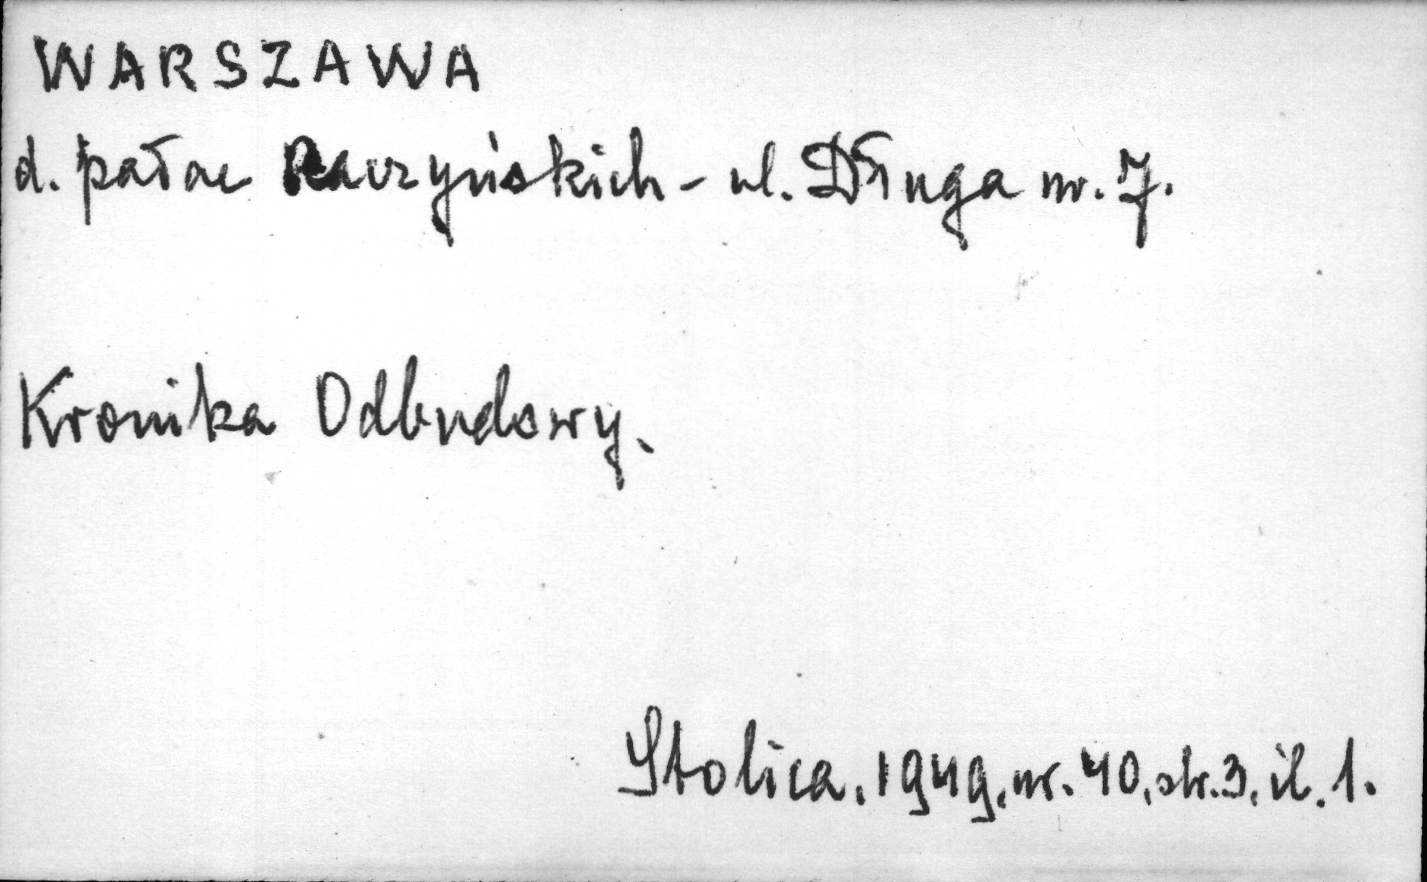 WARSZAWA
d. pałac Raczyńskich - ul. Długa nr. 7.
Kronika Odbudowy.
Stolica, 1949, nr. 40, str. 3, il. 1.